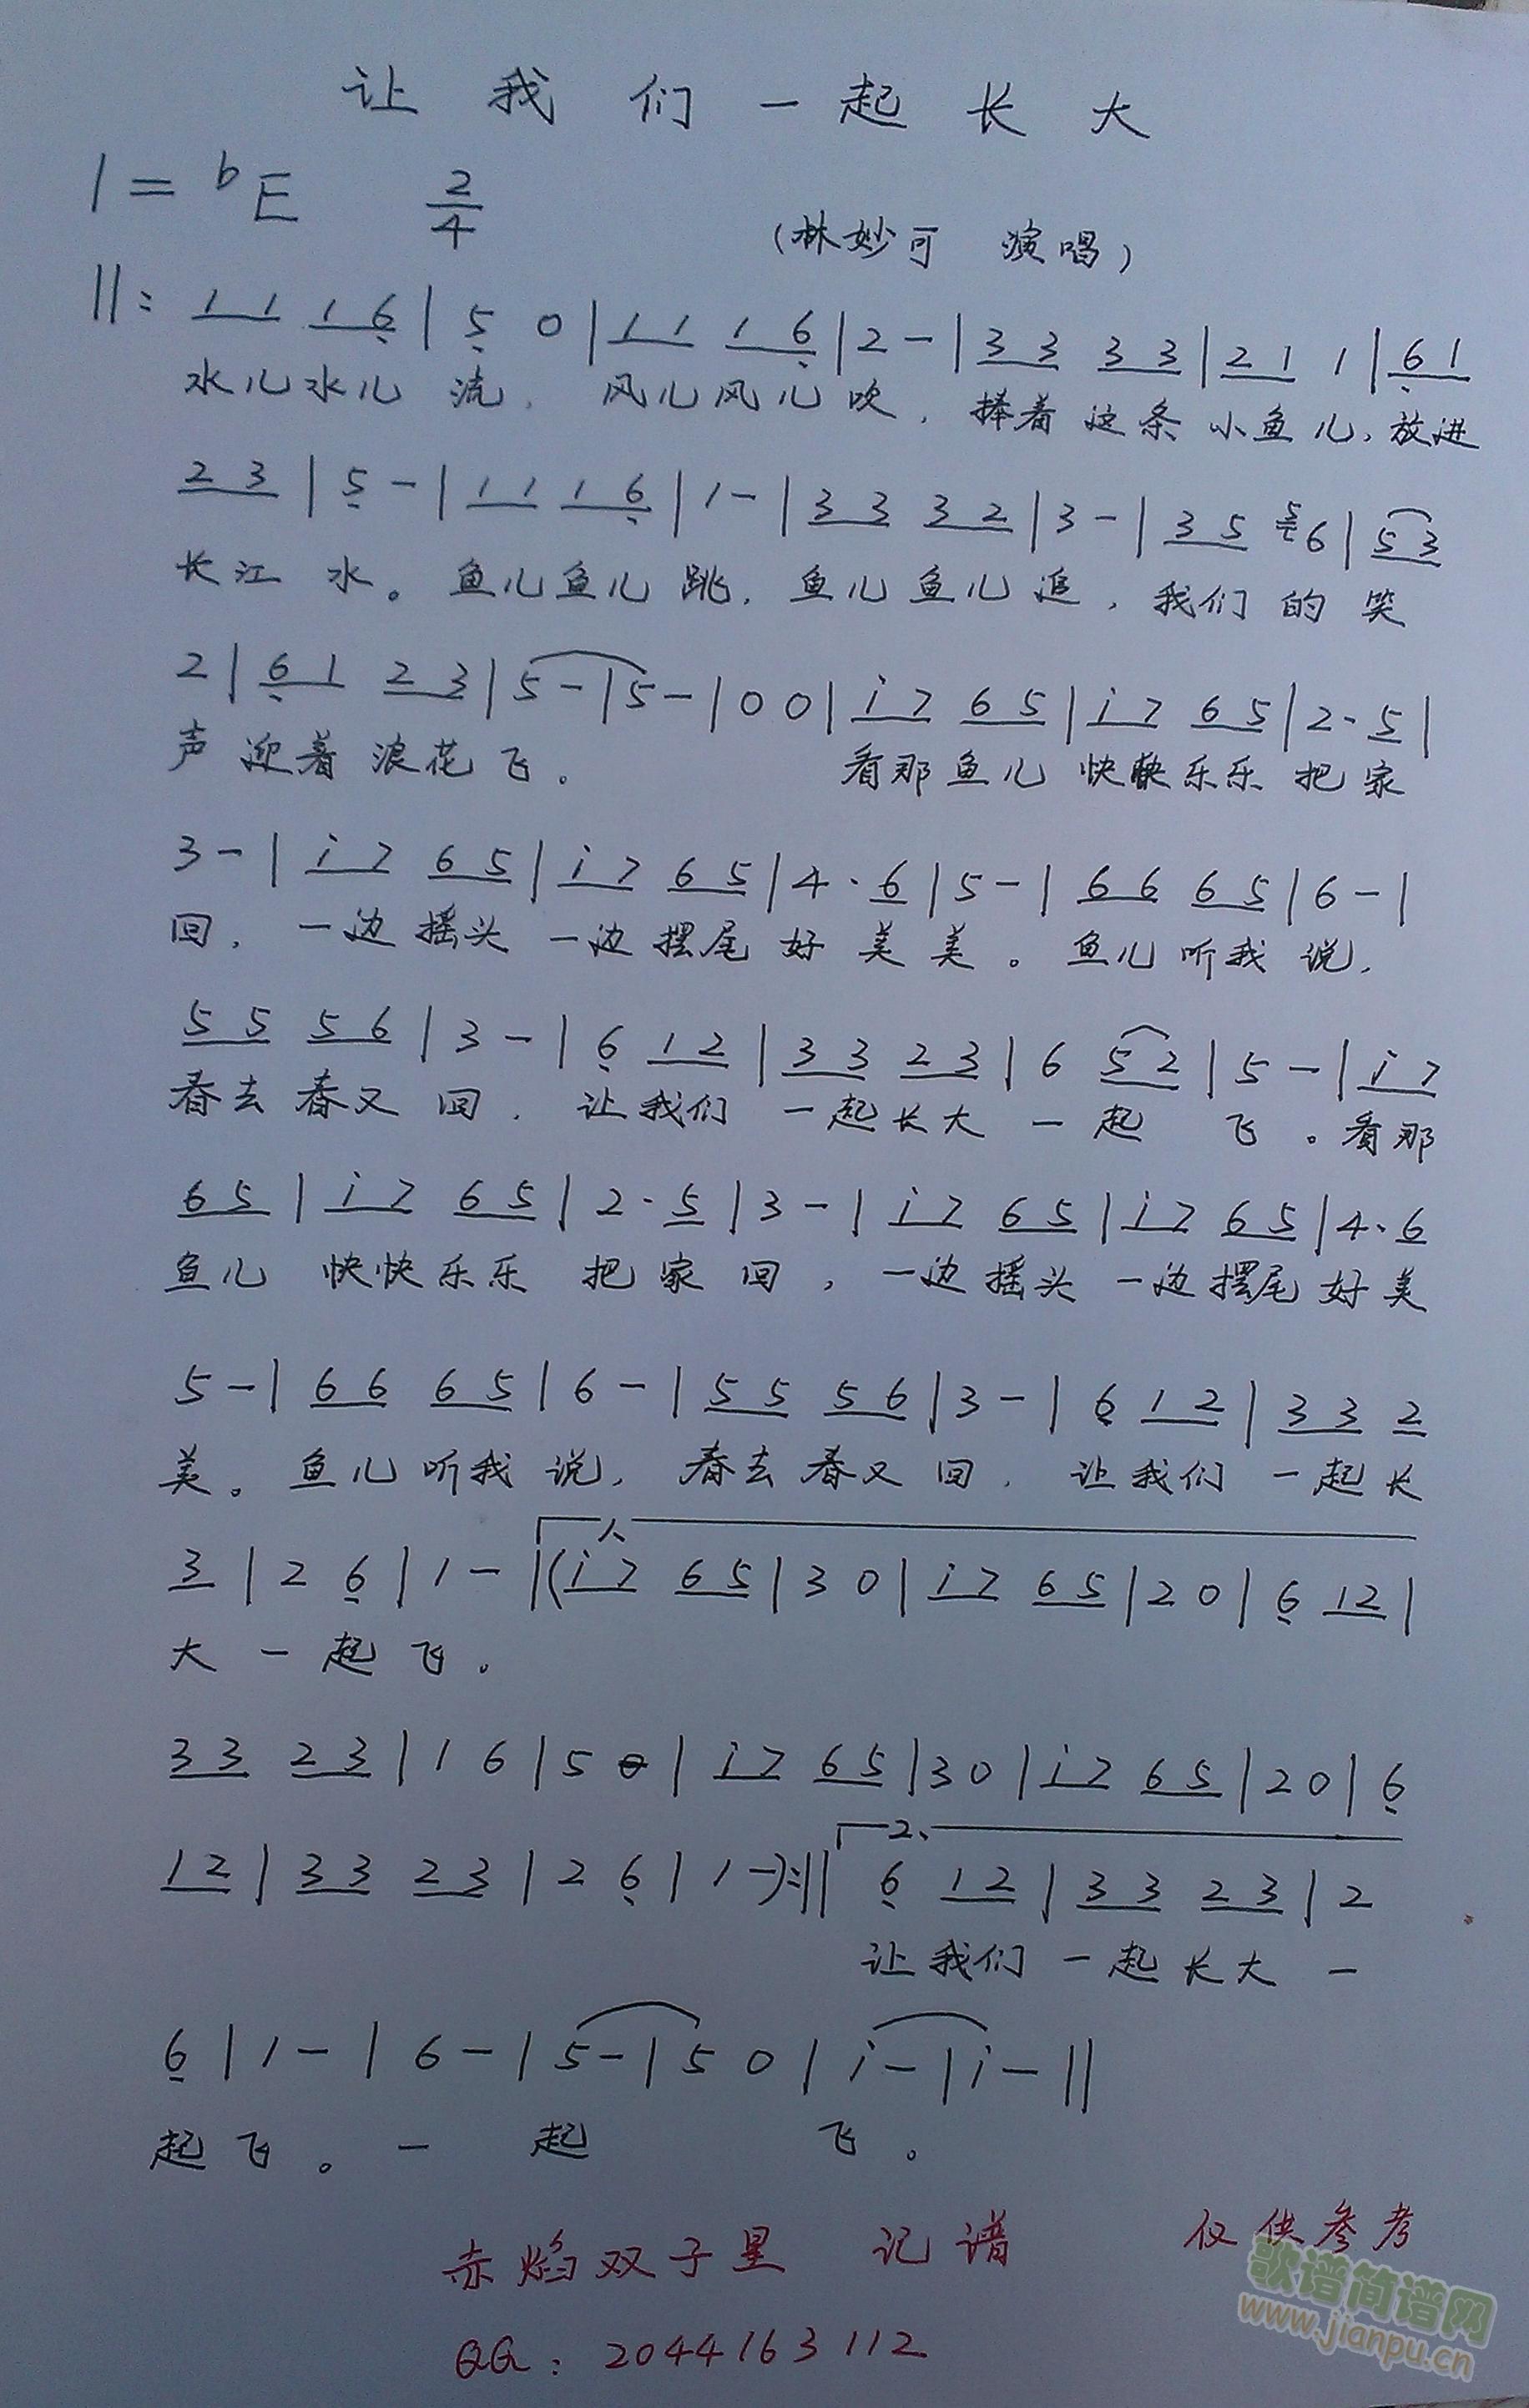 让我们一起长大
1=bE 2/4
(林妙可 演唱)
||: 1 1 1 6̣ | 5̣ 0 | 1 1 1 6̣ | 2 - | 3 3 3 3 | 2 1 1 | 6̣ 1
水儿水儿 流, 风儿风儿吹, 捧着这条小鱼儿, 放进
2 3 | 5̣ - | 1 1 1 6̣ | 1 - | 3 3 3 2 | 3 - | 3 5 5 6 | 5 3
长江 水。 鱼儿鱼儿 跳, 鱼儿鱼儿追, 我们 的 笑
2 | 6̣ 1 2 3 | 5 - | 5 - | 0 0 | i 7 6 5 | i 7 6 5 | 2· 5 |
声 迎着 浪花 飞。 看那鱼儿 快快乐乐 把 家
3 - | i 7 6 5 | i 7 6 5 | 4· 6 | 5 - | 6 6 6 5 | 6 - |
回, 一边摇头 一边摆尾 好 美 美。 鱼儿听我 说,
5 5 5 6 | 3 - | 6̣ 1 2 | 3 3 2 3 | 6 5 2 | 5 - | i 7
春去春又 回, 让我们 一起长大 一 起 飞。看那
6 5 | i 7 6 5 | 2· 5 | 3 - | i 7 6 5 | i 7 6 5 | 4· 6
鱼儿 快快乐乐 把 家 回, 一边摇头 一边摆尾好美
5 - | 6 6 6 5 | 6 - | 5 5 5 6 | 3 - | 6̣ 1 2 | 3 3 2
美。 鱼儿听我 说, 春去春又 回, 让我们 一起长
1、
3 | 2 6̣ | 1 - | (i 7 6 5 | 3 0 | i 7 6 5 | 2 0 | 6̣ 1 2 |
大 一 起 飞。
3 3 2 3 | 1 6 | 5 0 | i 7 6 5 | 3 0 | i 7 6 5 | 2 0 | 6̣
2、
1 2 | 3 3 2 3 | 2 6̣ | 1 -) :|| 6̣ 1 2 | 3 3 2 3 | 2
让我们 一起长大 一
6̣ | 1 - | 6 - | 5 - | 5 0 | i - | i - ||
起 飞。 一 起 飞。
赤焰双子星 记谱 仅供参考
QQ: 2044163112
歌谱简谱网
www.jianpu.cn